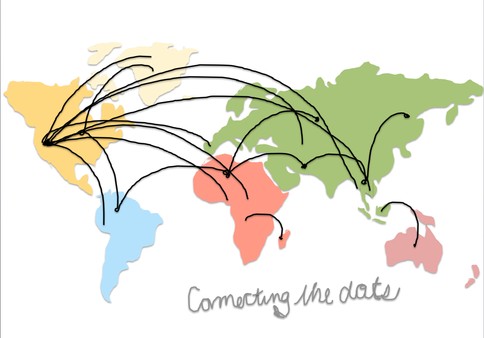 Connecting the dots